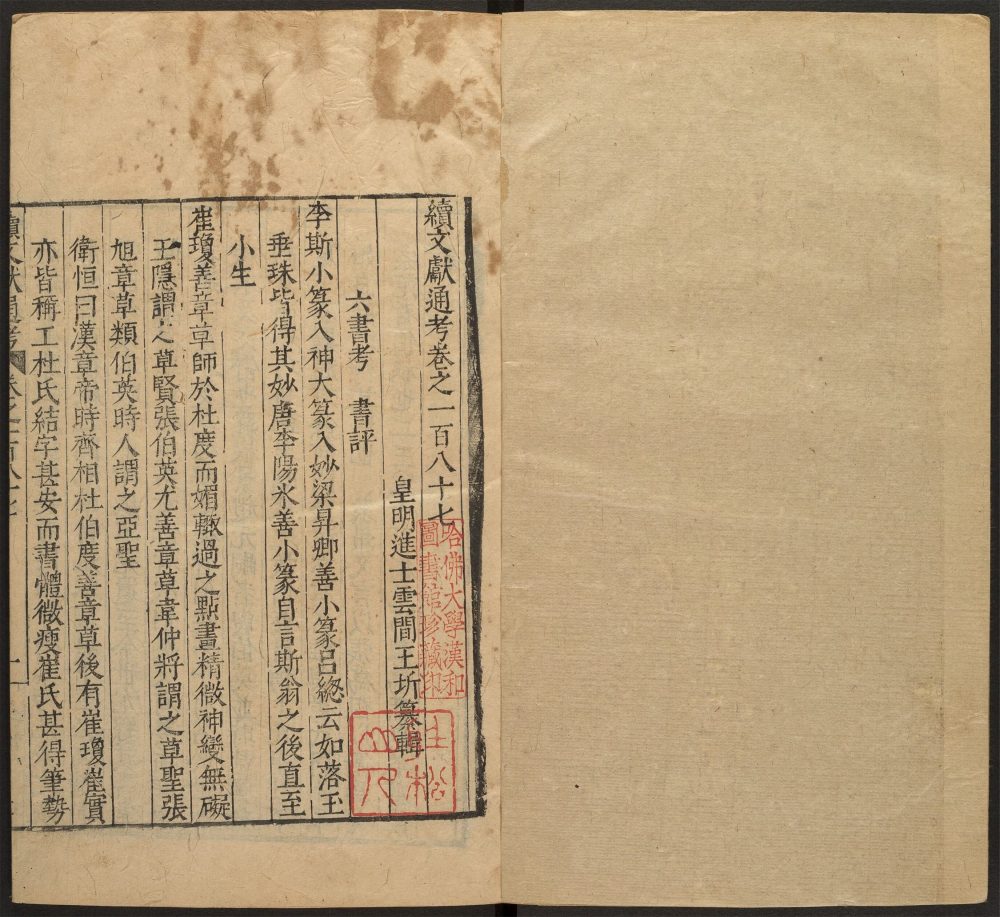 續文獻通考卷之一百八十七
皇明進士雲間王圻纂輯
六書考 書評
李斯小篆入神大篆入妙梁昇卿善小篆呂緫云如落玉
垂珠皆得其妙唐李陽氷善小篆自言斯翁之後直至
小生
崔瓊善章草師於杜度而媚輙過之點畫精微神變無礙
王隱謂之草賢張伯英尤善章草韋仲將謂之草聖張
旭章草類伯英時人謂之亞聖
衛恒曰漢章帝時齊相杜伯度善章草後有崔瓊崔實
亦皆稱工杜氏結字甚安而書體微瘦崔氏甚得筆勢
續文獻通考 卷之一百八十七 一
哈佛大學漢和
圖書館珍藏印
山人